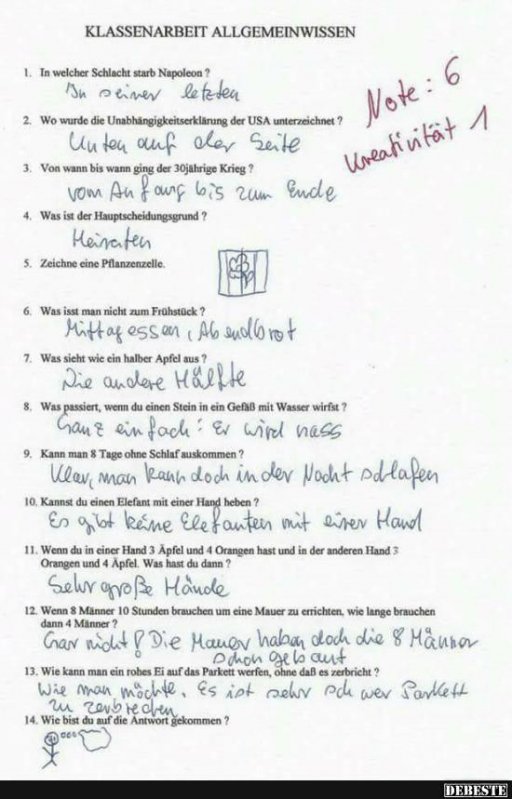 KLASSENARBEIT ALLGEMEINWISSEN
1. In welcher Schlacht starb Napoleon ?
In seiner letzten
Note: 6
Kreativität 1
2. Wo wurde die Unabhängigkeitserklärung der USA unterzeichnet ?
Unten auf der Seite
3. Von wann bis wann ging der 30jährige Krieg ?
vom Anfang bis zum Ende
4. Was ist der Hauptscheidungsgrund ?
Heiraten
5. Zeichne eine Pflanzenzelle.
6. Was isst man nicht zum Frühstück ?
Mittagessen, Abendbrot
7. Was sieht wie ein halber Apfel aus ?
Die andere Hälfte
8. Was passiert, wenn du einen Stein in ein Gefäß mit Wasser wirfst ?
Ganz einfach: Er wird nass
9. Kann man 8 Tage ohne Schlaf auskommen ?
Klar, man kann doch in der Nacht schlafen
10. Kannst du einen Elefant mit einer Hand heben ?
Es gibt keine Elefanten mit einer Hand
11. Wenn du in einer Hand 3 Äpfel und 4 Orangen hast und in der anderen Hand 3
Orangen und 4 Äpfel. Was hast du dann ?
Sehr große Hände
12. Wenn 8 Männer 10 Stunden brauchen um eine Mauer zu errichten, wie lange brauchen
dann 4 Männer ?
Gar nicht! Die Mauer haben doch die 8 Männer
schon gebaut
13. Wie kann man ein rohes Ei auf das Parkett werfen, ohne daß es zerbricht ?
Wie man möchte. Es ist sehr schwer Parkett
zu zerbrechen
14. Wie bist du auf die Antwort gekommen ?
DEBESTE